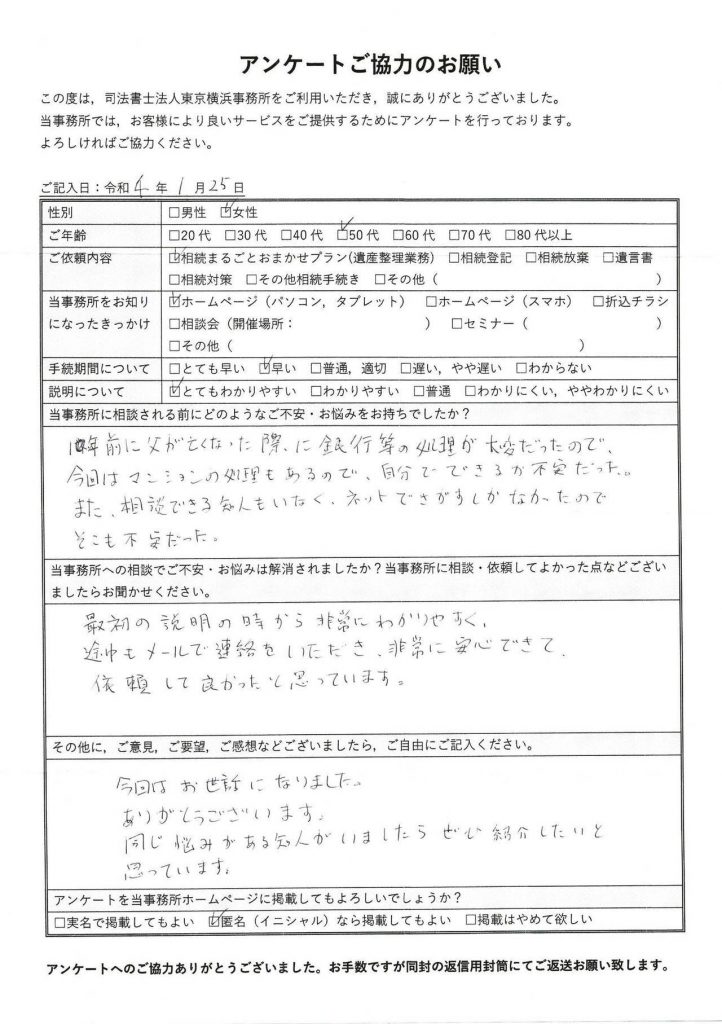 アンケートご協力のお願い
この度は，司法書士法人東京横浜事務所をご利用いただき，誠にありがとうございました。
当事務所では，お客様により良いサービスをご提供するためにアンケートを行っております。
よろしければご協力ください。
ご記入日：令和 4 年 1 月 25 日
性別 □男性 ☑女性
ご年齢 □20 代 □30 代 □40 代 ☑50 代 □60 代 □70 代 □80 代以上
ご依頼内容 ☑相続まるごとおまかせプラン(遺産整理業務) □相続登記 □相続放棄 □遺言書
□相続対策 □その他相続手続き □その他（ ）
当事務所をお知り ☑ホームページ（パソコン，タブレット） □ホームページ（スマホ） □折込チラシ
になったきっかけ □相談会（開催場所： ） □セミナー（ ）
□その他（ ）
手続期間について □とても早い ☑早い □普通，適切 □遅い，やや遅い □わからない
説明について ☑とてもわかりやすい □わかりやすい □普通 □わかりにくい，ややわかりにくい
当事務所に相談される前にどのようなご不安・お悩みをお持ちでしたか？
10年前に父が亡くなった際、に銀行等の処理が大変だったので、
今回はマンションの処理もあるので、自分でできるか不安だった。
また、相談できる知人もいなく、ネットでさがすしかなかったので
そこも不安だった。
当事務所への相談でご不安・お悩みは解消されましたか？当事務所に相談・依頼してよかった点などござい
ましたらお聞かせください。
最初の説明の時から非常にわかりやすく、
途中もメールで連絡をいただき、非常に安心できて、
依頼して良かったと思っています。
その他に，ご意見，ご要望，ご感想などございましたら，ご自由にご記入ください。
今回はお世話になりました。
ありがとうございます。
同じ悩みがある知人がいましたらぜひ紹介したいと
思っています。
アンケートを当事務所ホームページに掲載してもよろしいでしょうか？
□実名で掲載してもよい ☑匿名（イニシャル）なら掲載してもよい □掲載はやめて欲しい
アンケートへのご協力ありがとうございました。お手数ですが同封の返信用封筒にてご返送お願い致します。